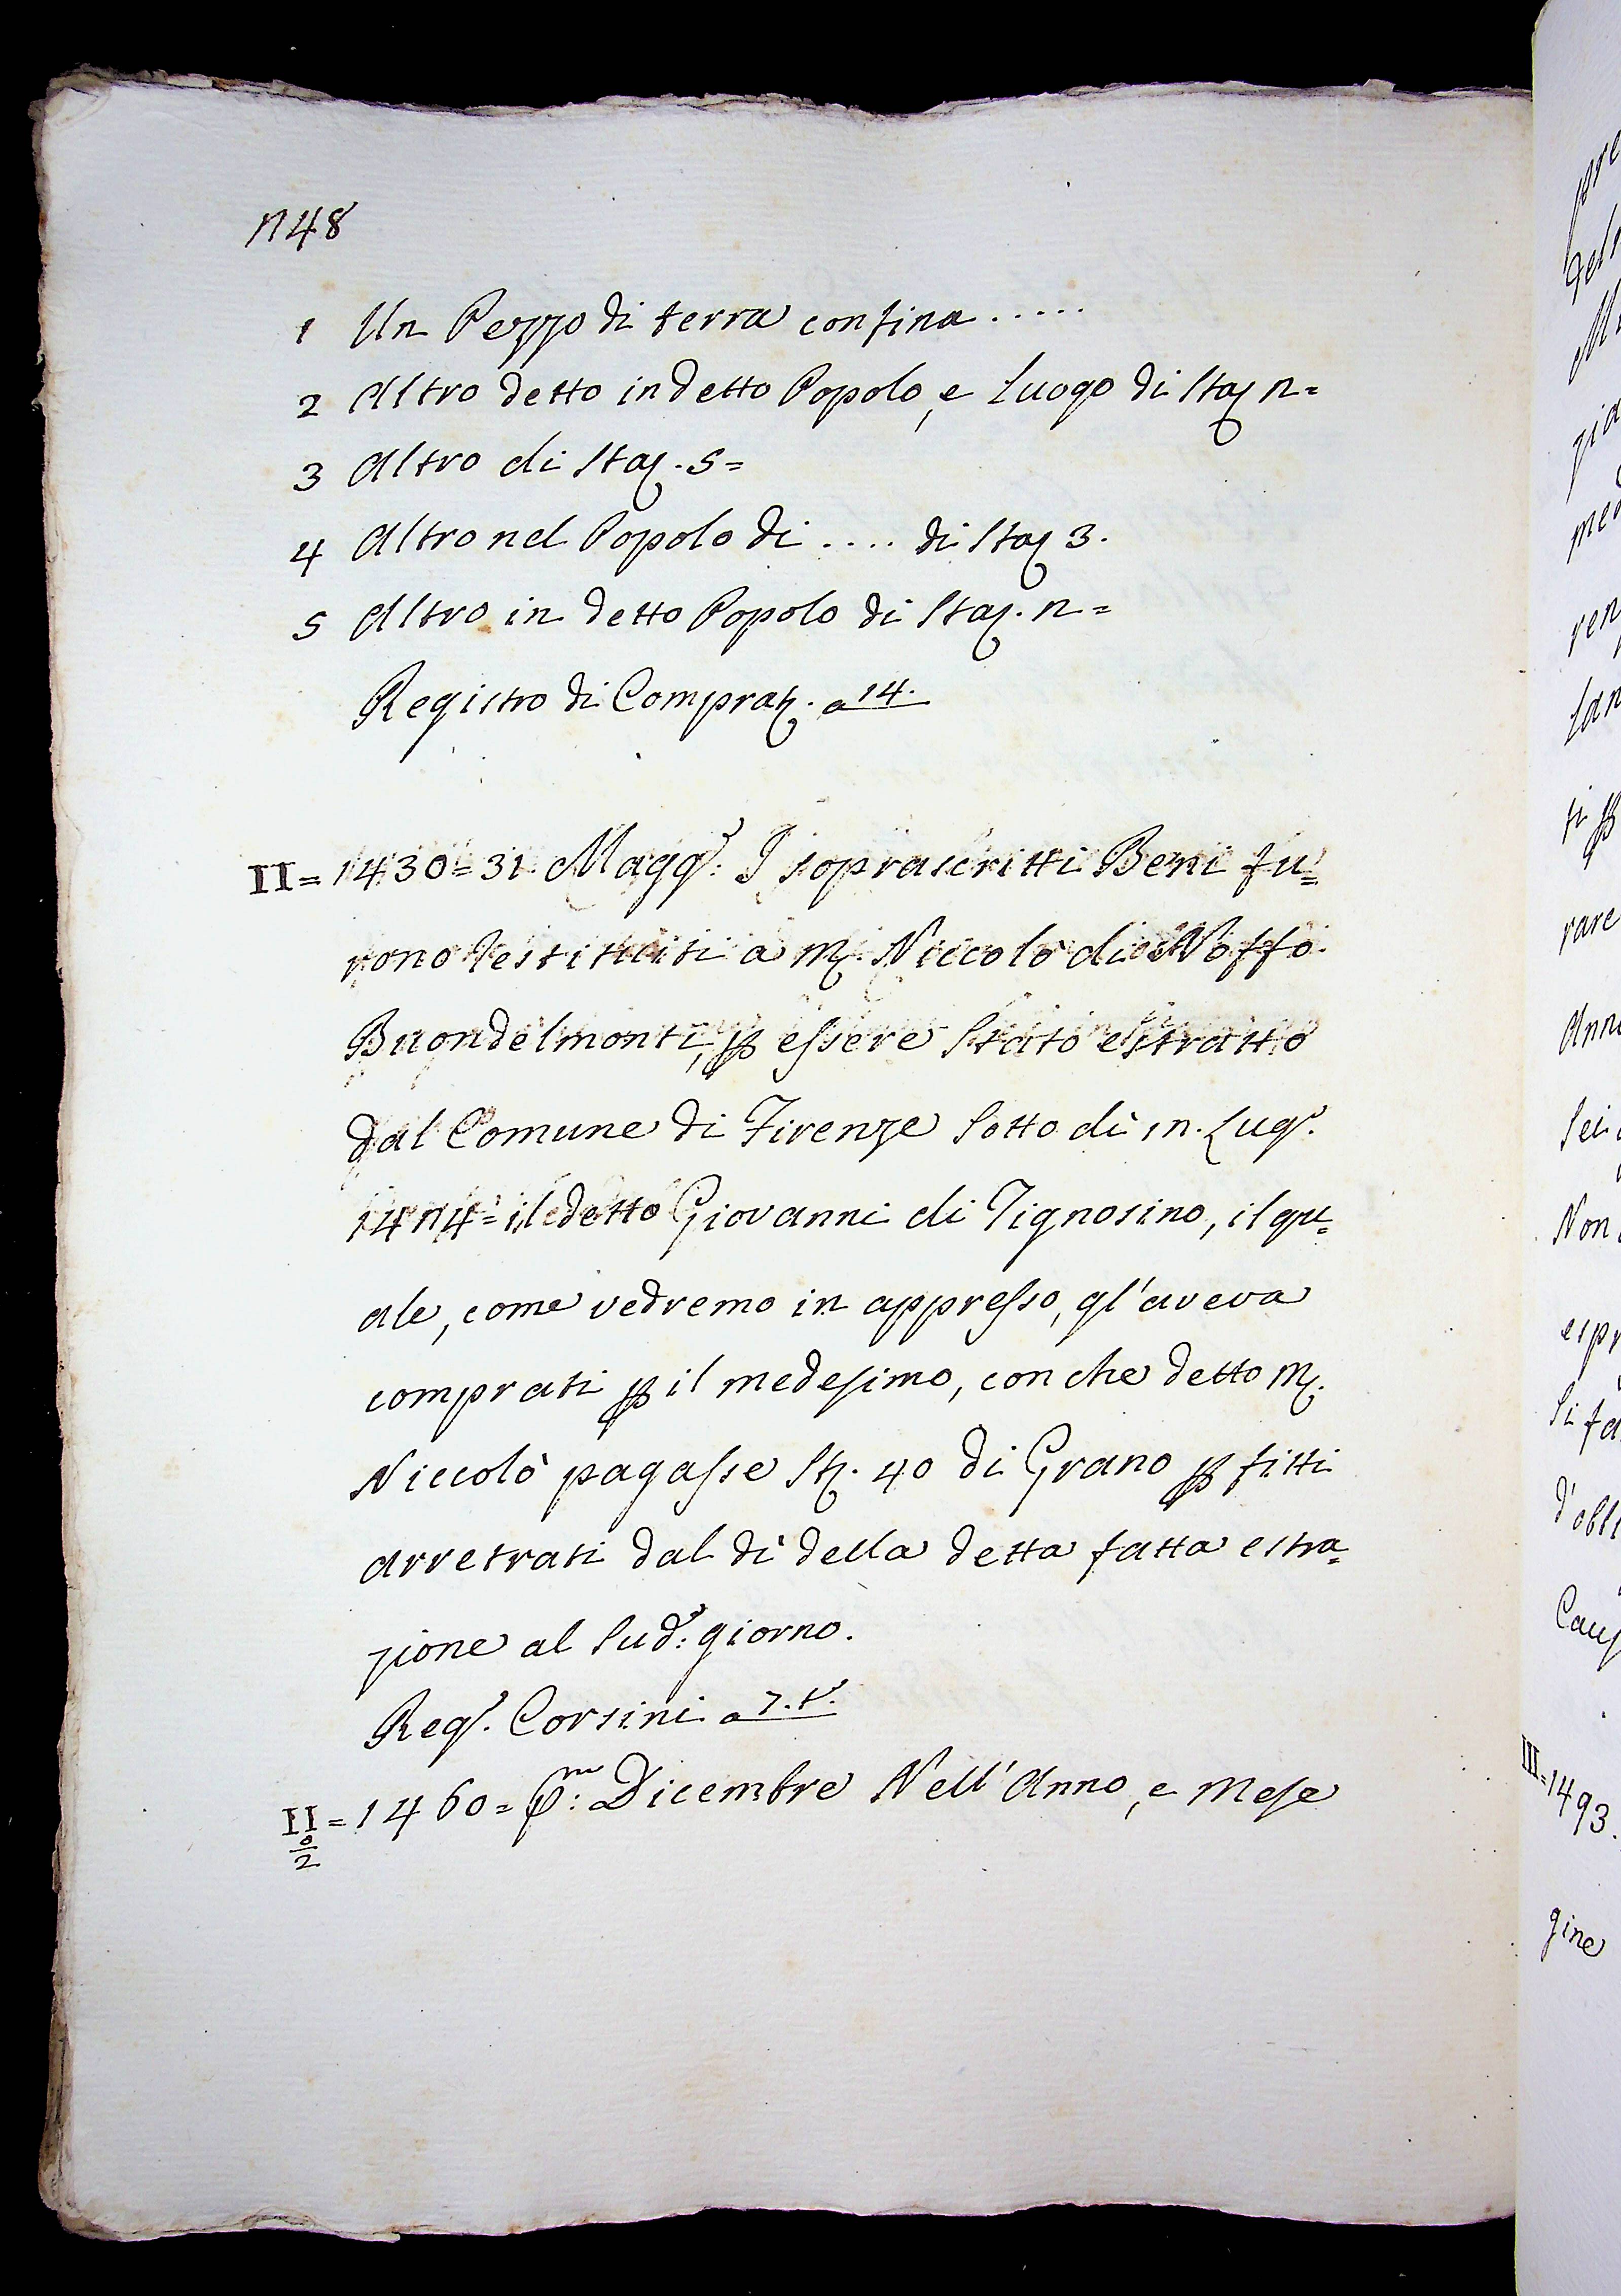 n48
1 Un Pezzo di terra confina .....
2 Altro detto in detto Popolo, e luogo di Staj n=
3 Altro di Staj. 5=
4 Altro nel Popolo di .... di Staj 3.
5 Altro in detto Popolo di Staj. n=
Registro di Comprat. a 14.
II= 1430= 31. Magg.º: I soprascritti Beni fu=
rono restituiti a M. Niccolò di Noffo
Buondelmonti, ꝑ essere stato estratto
dal Comune di Firenze sotto dì 1n. Lugº.
14n4= il detto Giovanni di Tignosino, il qu=
ale, come vedremo in appresso, gl'aveva
comprati ꝑ il medesimo, con che detto M.
Niccolò pagasse St. 40 di Grano ꝑ fitti
arretrati dal dì della detta fatta estra=
zione al Sudº: giorno.
Regº. Corsini a 7. tº.
II º/2 = 1460= Pmo: Dicembre Nell'Anno, e Mese
rare
Non
III=1493.
gine